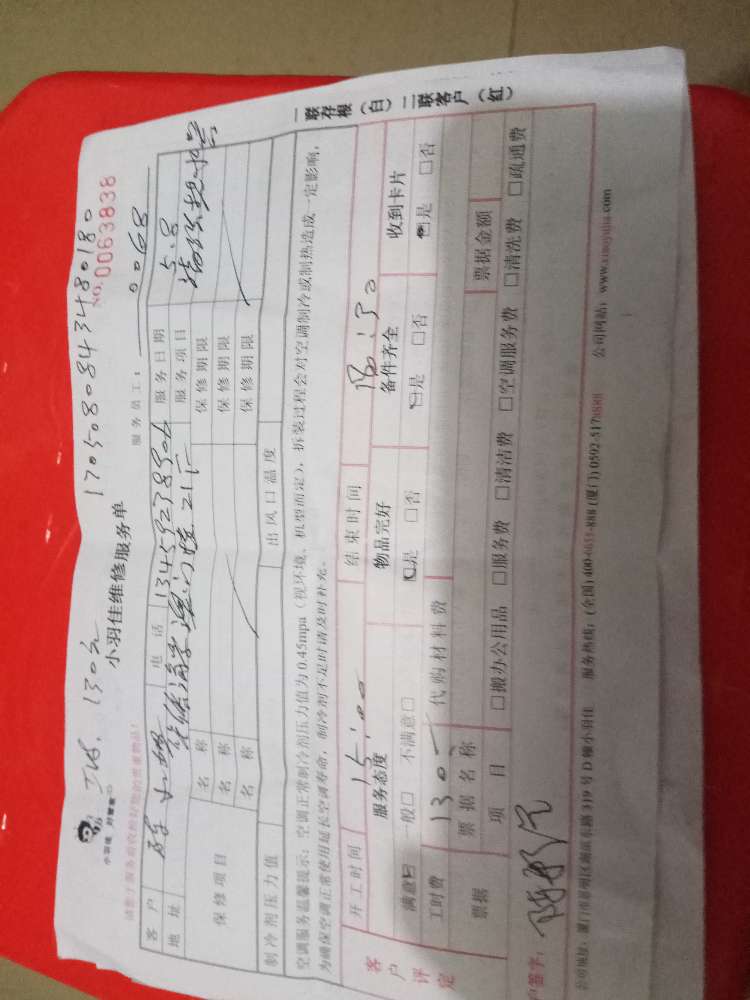 工时 130元 1705080843480180
小羽佳 封誉衡
小羽佳维修服务单
NO.0063838
服务员工: 0068
客户 电话 13459238506 服务日期 5.8
地址 服务项目
保修项目 名称 保修期限
名称 保修期限
名称 保修期限
制冷剂压力值 出风口温度
空调服务温馨提示:空调正常制冷剂压力值为0.45mpa(视环境、机型而定),拆装过程会对空调制冷或制热造成一定影响,
为确保空调正常使用延长空调寿命,制冷剂不足时请及时补充。
一联存根(白) 二联客户(红)
开工时间 15:00 结束时间 18:30
客户评定 服务态度 物品完好 备件齐全 收到卡片
满意□ 一般□ 不满意□ □是 □否 □是 □否 □是 □否
工时费 130 代购材料费
票据 票据名称 票据金额
项目 □搬办公用品 □服务费 □清洁费 □空调服务费 □清洗费 □疏通费
户签字:
公司地址: 厦门市思明区湖滨东路319号D幢小羽佳 服务热线:(全国)400-6655-888 (厦门)0592-5178888 公司网站: www.xiaoyujia.com